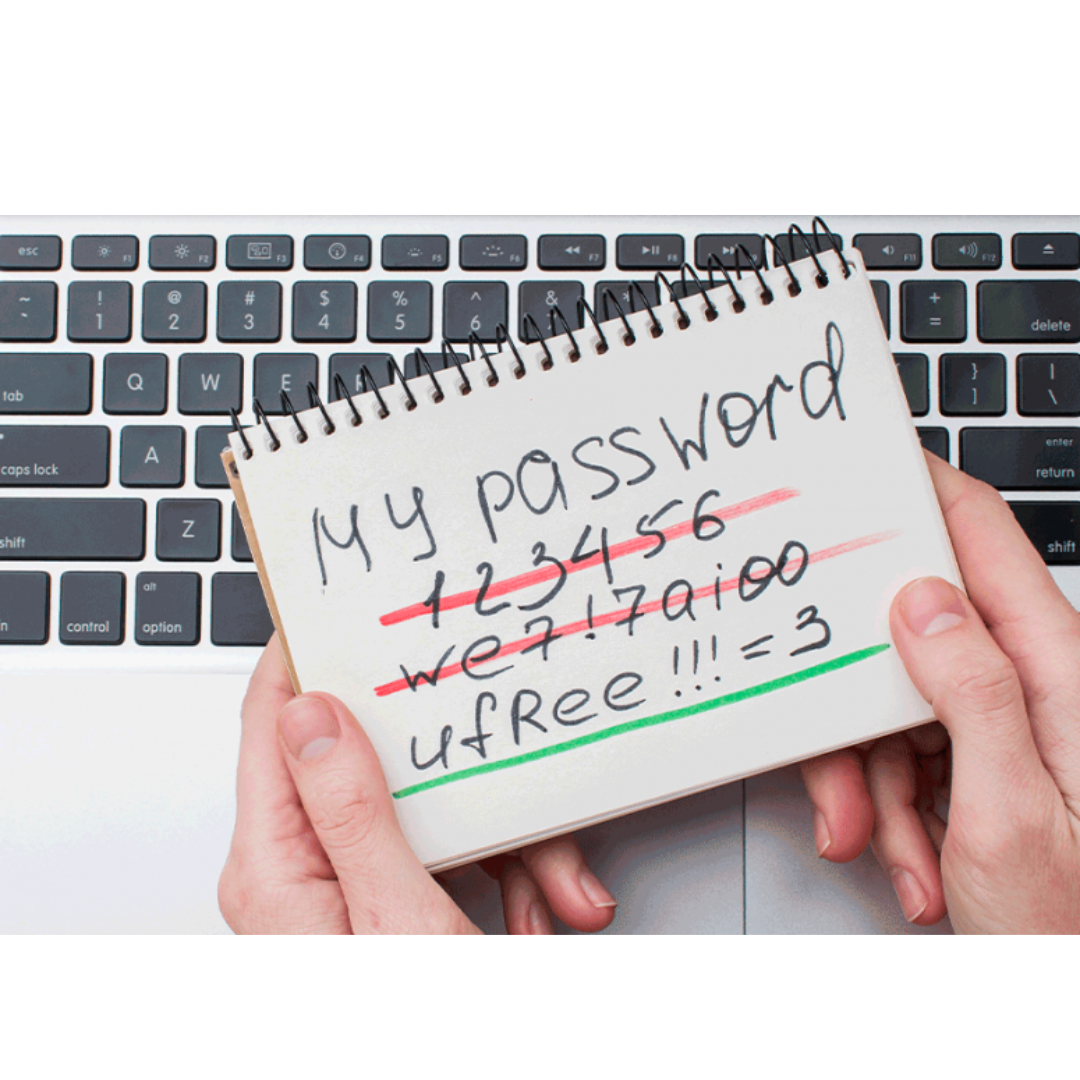 esc F1 F2 F3 F4 F5 F6 F7 F8 F11 F12
~ ` ! 1 @ 2 # 3 $ 4 % 5 ^ 6 & + = delete
tab Q W E R } ] | \
caps lock A enter return
shift Z shift
control alt option
My password
123456
we7!7aioo
ufRee!!! = 3